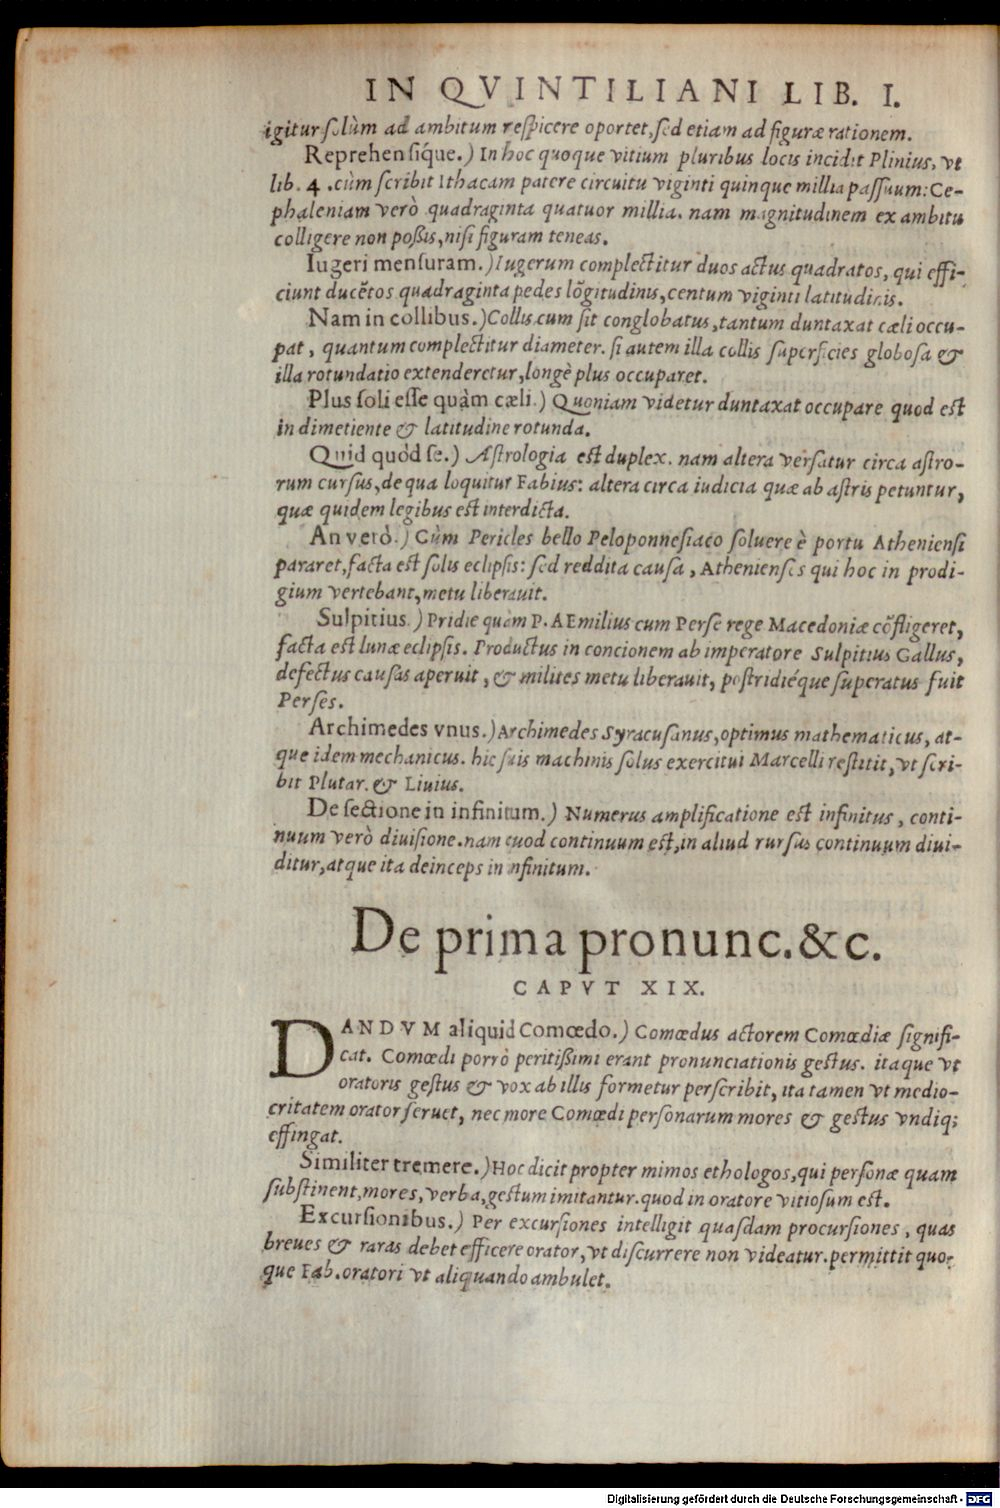 IN QVINTILIANI LIB. I.
igitur solùm ad ambitum respicere oportet, sed etiam ad figuræ rationem.
Reprehensíque.) In hoc quoque vitium pluribus locis incidit Plinius, vt
lib. 4 .cùm scribit Ithacam patere circuitu viginti quinque millia passuum: Ce-
phaleniam verò quadraginta quatuor millia. nam magnitudinem ex ambitu
colligere non poßis, nisi figuram teneas.
Iugeri mensuram.) Iugerum complectitur duos actus quadratos, qui effi-
ciunt ducẽtos quadraginta pedes lõgitudinis, centum viginti latitudinis.
Nam in collibus.) Collis cum sit conglobatus, tantum duntaxat cæli occu-
pat, quantum complectitur diameter. si autem illa collis superficies globosa &
illa rotundatio extenderetur, longè plus occuparet.
Plus soli esse quàm cæli.) Quoniam videtur duntaxat occupare quod est
in dimetiente & latitudine rotunda.
Quid quòd se.) Astrologia est duplex. nam altera versatur circa astro-
rum cursus, de qua loquitur Fabius: altera circa iudicia quæ ab astris petuntur,
quæ quidem legibus est interdicta.
An verò.) Cùm Pericles bello Peloponnesiaco soluere è portu Atheniensi
pararet, facta est solis eclipsis: sed reddita causa, Athenienses qui hoc in prodi-
gium vertebant, metu liberauit.
Sulpitius.) Pridie quàm P. AEmilius cum Perse rege Macedoniæ cõfligeret,
facta est lunæ eclipsis. Productus in concionem ab imperatore Sulpitius Gallus,
defectus causas aperuit, & milites metu liberauit, postridiéque superatus fuit
Perses.
Archimedes vnus.) Archimedes Syracusanus, optimus mathematicus, at-
que idem mechanicus. hic suis machinis solus exercitui Marcelli restitit, vt scri-
bit Plutar. & Liuius.
De sectione in infinitum.) Numerus amplificatione est infinitus, conti-
nuum verò diuisione. nam quod continuum est, in aliud rursus continuum diui-
ditur, atque ita deinceps in infinitum.
De prima pronunc. &c.
CAPVT XIX.
DANDVM aliquid Comœdo.) Comœdus actorem Comœdiæ signifi-
cat. Comœdi porrò peritißimi erant pronunciationis gestus. itaque vt
oratoris gestus & vox ab illis formetur perscribit, ita tamen vt medio-
critatem orator seruet, nec more Comœdi personarum mores & gestus vndiq;
effingat.
Similiter tremere.) Hoc dicit propter mimos ethologos, qui personæ quam
substinent, mores, verba, gestum imitantur. quod in oratore vitiosum est.
Excursionibus.) Per excursiones intelligit quasdam procursiones, quas
breues & raras debet efficere orator, vt discurrere non videatur. permittit quo-
que Fab. oratori vt aliquando ambulet.
Digitalisierung gefördert durch die Deutsche Forschungsgemeinschaft - DFG